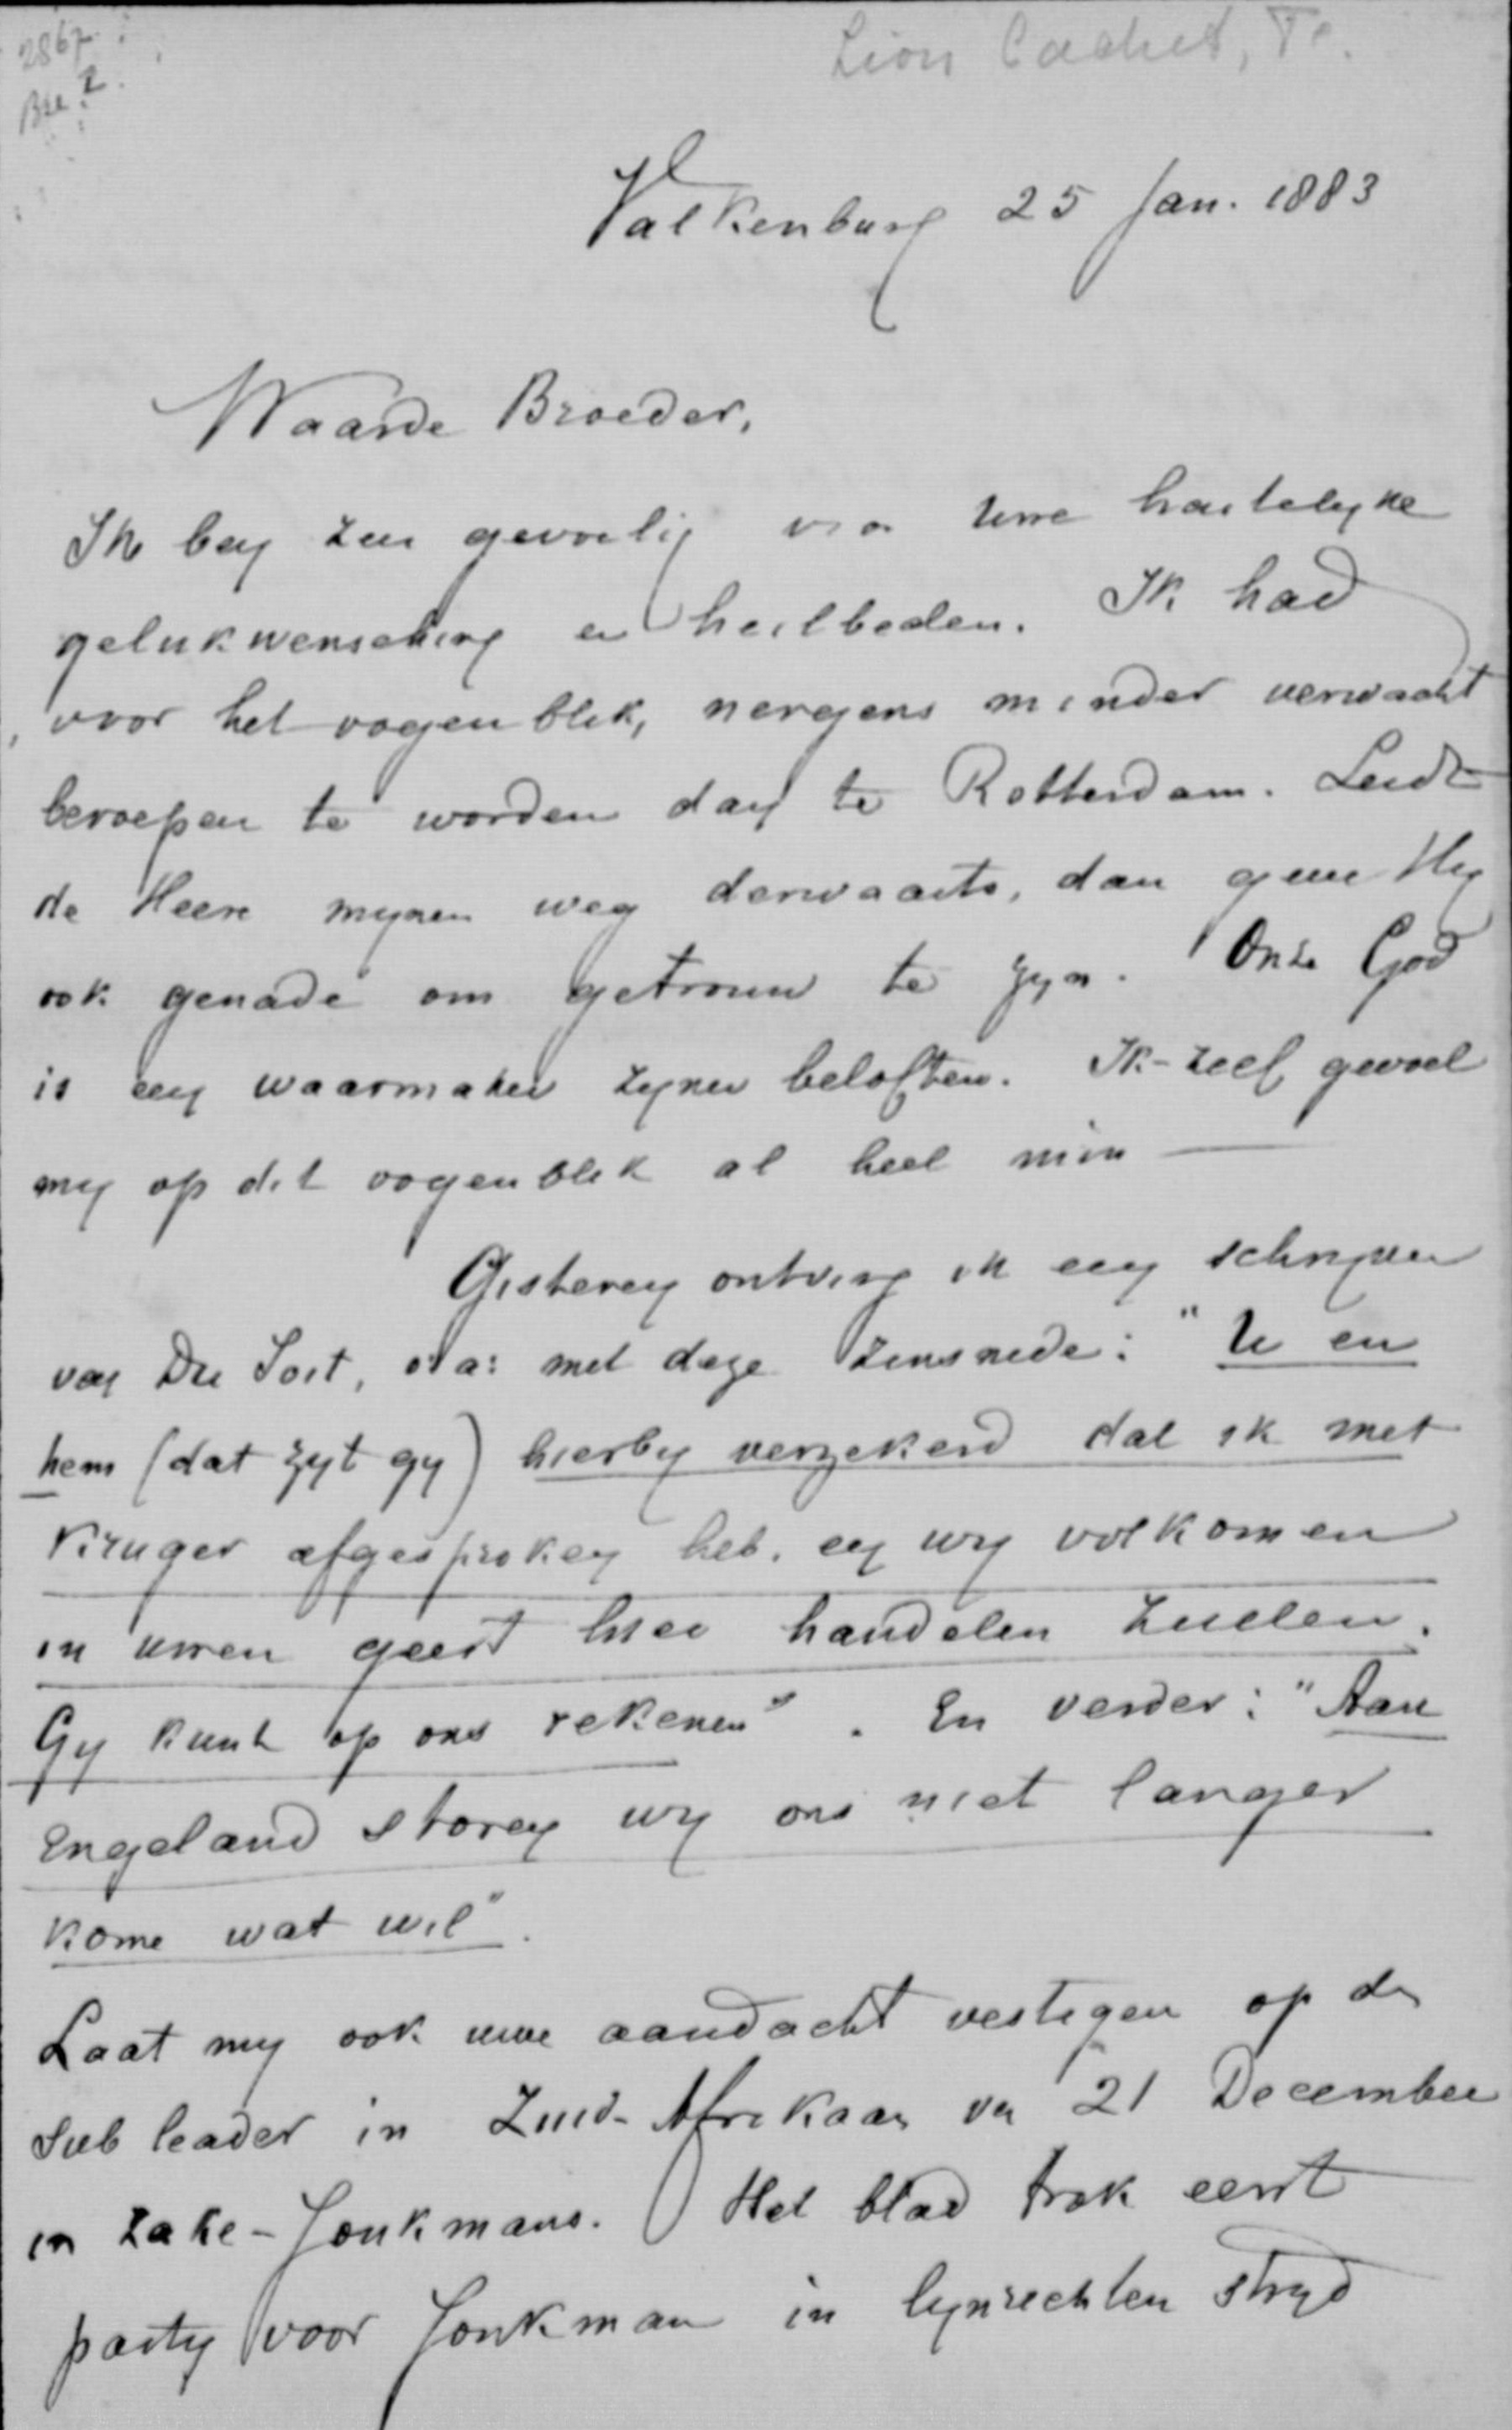 2867
Lion Cachet, F.
Valkenburg 25 Jan. 1883
Waarde Broeder,
Ik ben zeer gevoelig voor Uwe hartelyke
gelukwensching en heilbeden. Ik had
voor het oogenblik, nergens minder verwacht
beroepen te worden dan te Rotterdam. Leidt
de Heere mynen weg derwaarts, dan geve Hy
ook genade om getrouw te zyn. Onze God
is een waarmaker zyner beloften. Ik-zelf gevoel
my op dit oogenblik al heel min —
Gisteren ontving ik een schryven
van Du Toit, o.a: met deze zinsnede: "U en
hem (dat zyt gy) hierby verzekerd dat ik met
Kruger afgesproken heb, en wy volkomen
in uwen geest hier handelen zullen.
Gy kunt op ons rekenen". En verder: "Aan
Engeland storen wy ons niet langer
kome wat wil".
Laat my ook uwe aandacht vestigen op de
sub leader in Zuid-Afrikaan van 21 December
in zake-Jonkmans. Het blad trok eerst
party voor Jonkman in lynrechten stryd